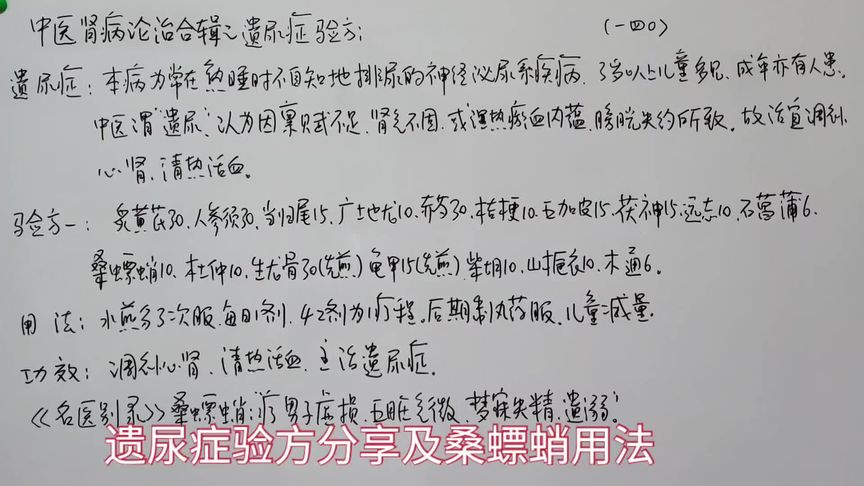 中医肾病论治合辑之遗尿症验方: (一四〇)
遗尿症: 本病为常在熟睡时不自知地排尿的神经泌尿系疾病. 3岁以上儿童多见. 成年亦有人患.
中医谓"遗尿". 认为因禀赋不足. 肾气不固. 或湿热瘀血内蕴. 膀胱失约所致. 故治宜调补
心肾. 清热活血.
验方一: 炙黄芪30. 人参须30. 当归尾15. 广土地龙10. 赤芍30. 桔梗10. 五加皮15. 茯神15. 远志10. 石菖蒲6.
桑螵蛸10. 杜仲10. 生龙骨30(先煎) 龟甲15(先煎) 柴胡10. 山栀衣10. 木通6.
用法: 水煎分3次服. 每日1剂. 42剂为1疗程. 后期制丸药服. 儿童减量.
功效: 调补心肾. 清热活血. 主治遗尿症.
《名医别录》桑螵蛸: 疗男子虚损. 五脏气微. 梦寐失精. 遗溺.
遗尿症验方分享及桑螵蛸用法